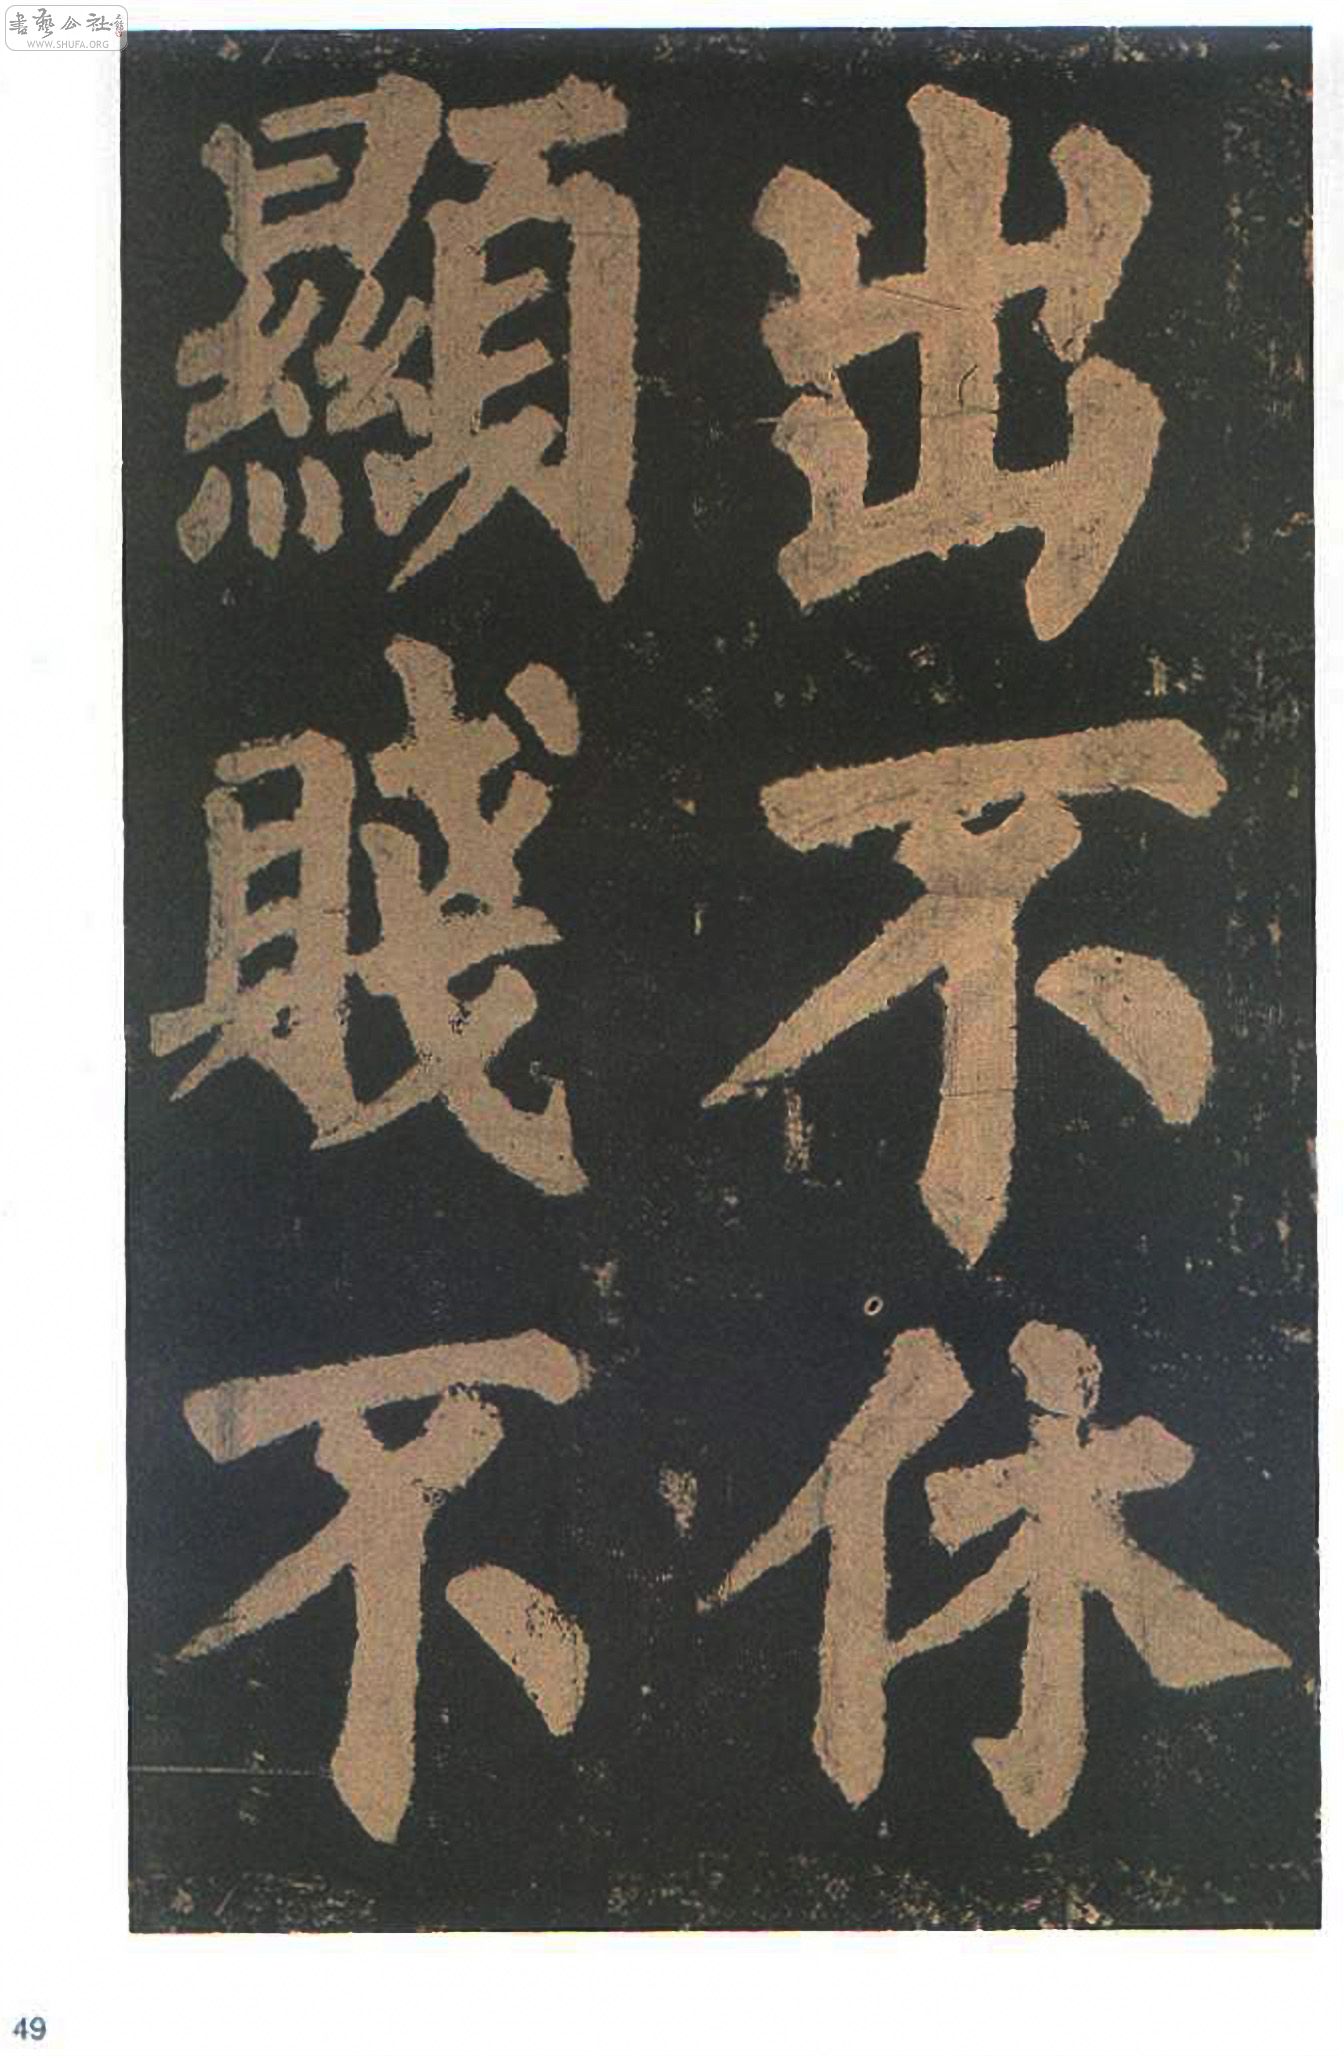 書藝公社
WWW.SHUFA.ORG
出不休
顯賤不
49